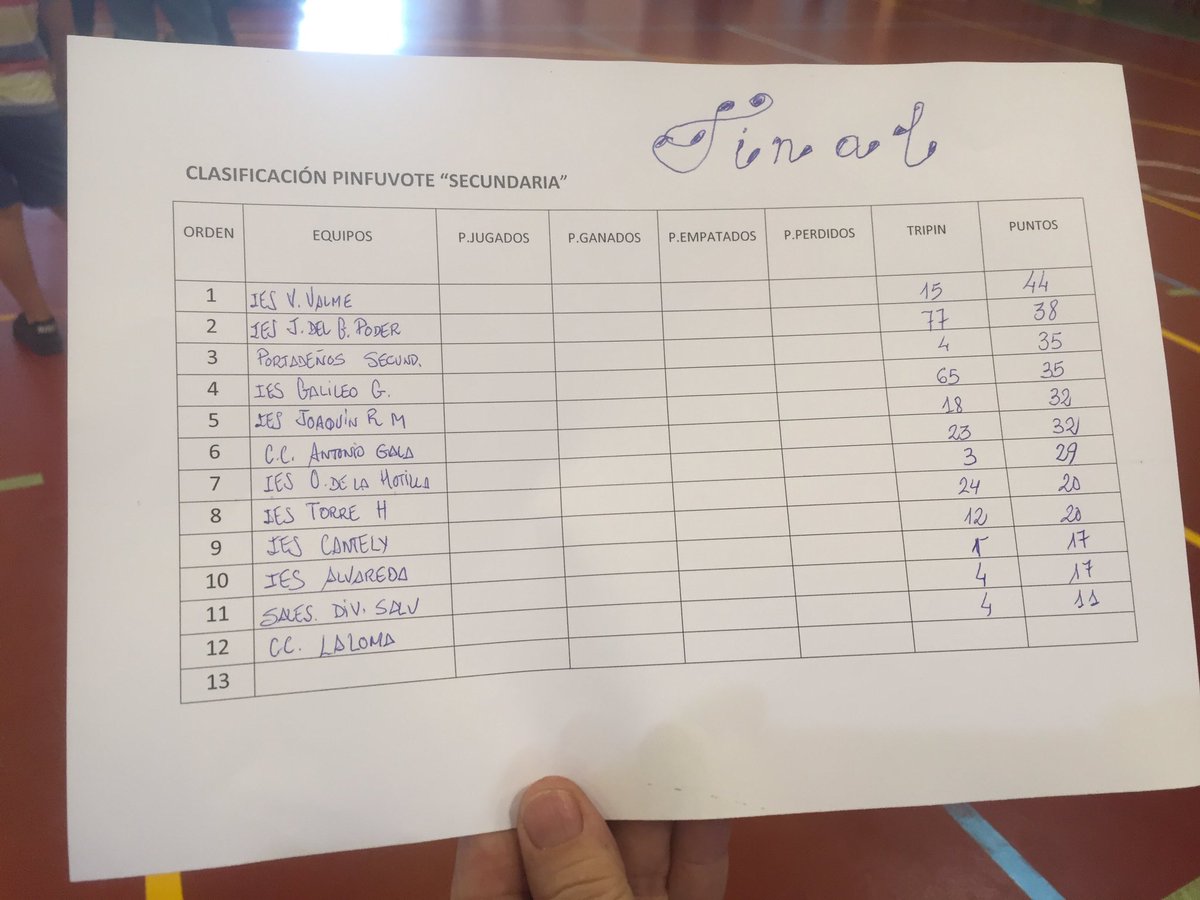 Final
CLASIFICACIÓN PINFUVOTE “SECUNDARIA”
ORDEN EQUIPOS P.JUGADOS P.GANADOS P.EMPATADOS P.PERDIDOS TRIPIN PUNTOS
1 IES V. VALME 15 44
2 IES J. DEL G. PODER 77 38
3 PORTADEÑOS SECUND. 4 35
4 IES GALILEO G. 65 35
5 IES JOAQUÍN R M 18 32
6 C.C. ANTONIO GALA 23 32
7 IES O. DE LA MOTILLA 3 29
8 IES TORRE H 24 20
9 IES CANTELY 12 20
10 IES ALVAREDA 1 17
11 SALES. DIV. SALV 4 17
12 CC. LALOMA 4 11
13